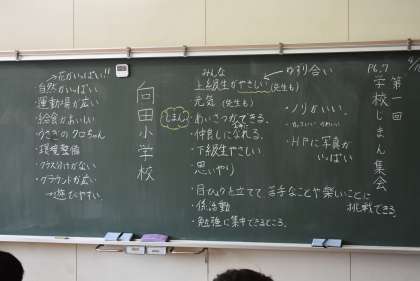 4/
P6.7 第一回
学校じまん集会
みんな
ゆずり合い
上級生がやさしい(先生も)
元気(先生も)
あいさつができる
仲良しになれる。
下級生やさしい
思いやり
目ひょうを立てて、苦手なことや楽しいことに
挑戦できる。
係活動
勉強に集中できるところ。
ノリがいい。
かっこいい かわいい
HPに写真が
いっぱい
じまん
向田小学校
花がいっぱい!!
自然がいっぱい
運動場が広い
給食がおいしい
うさぎのクロちゃん
環境整備
クラス分けがない
グラウンドが広い
→遊びやすい。